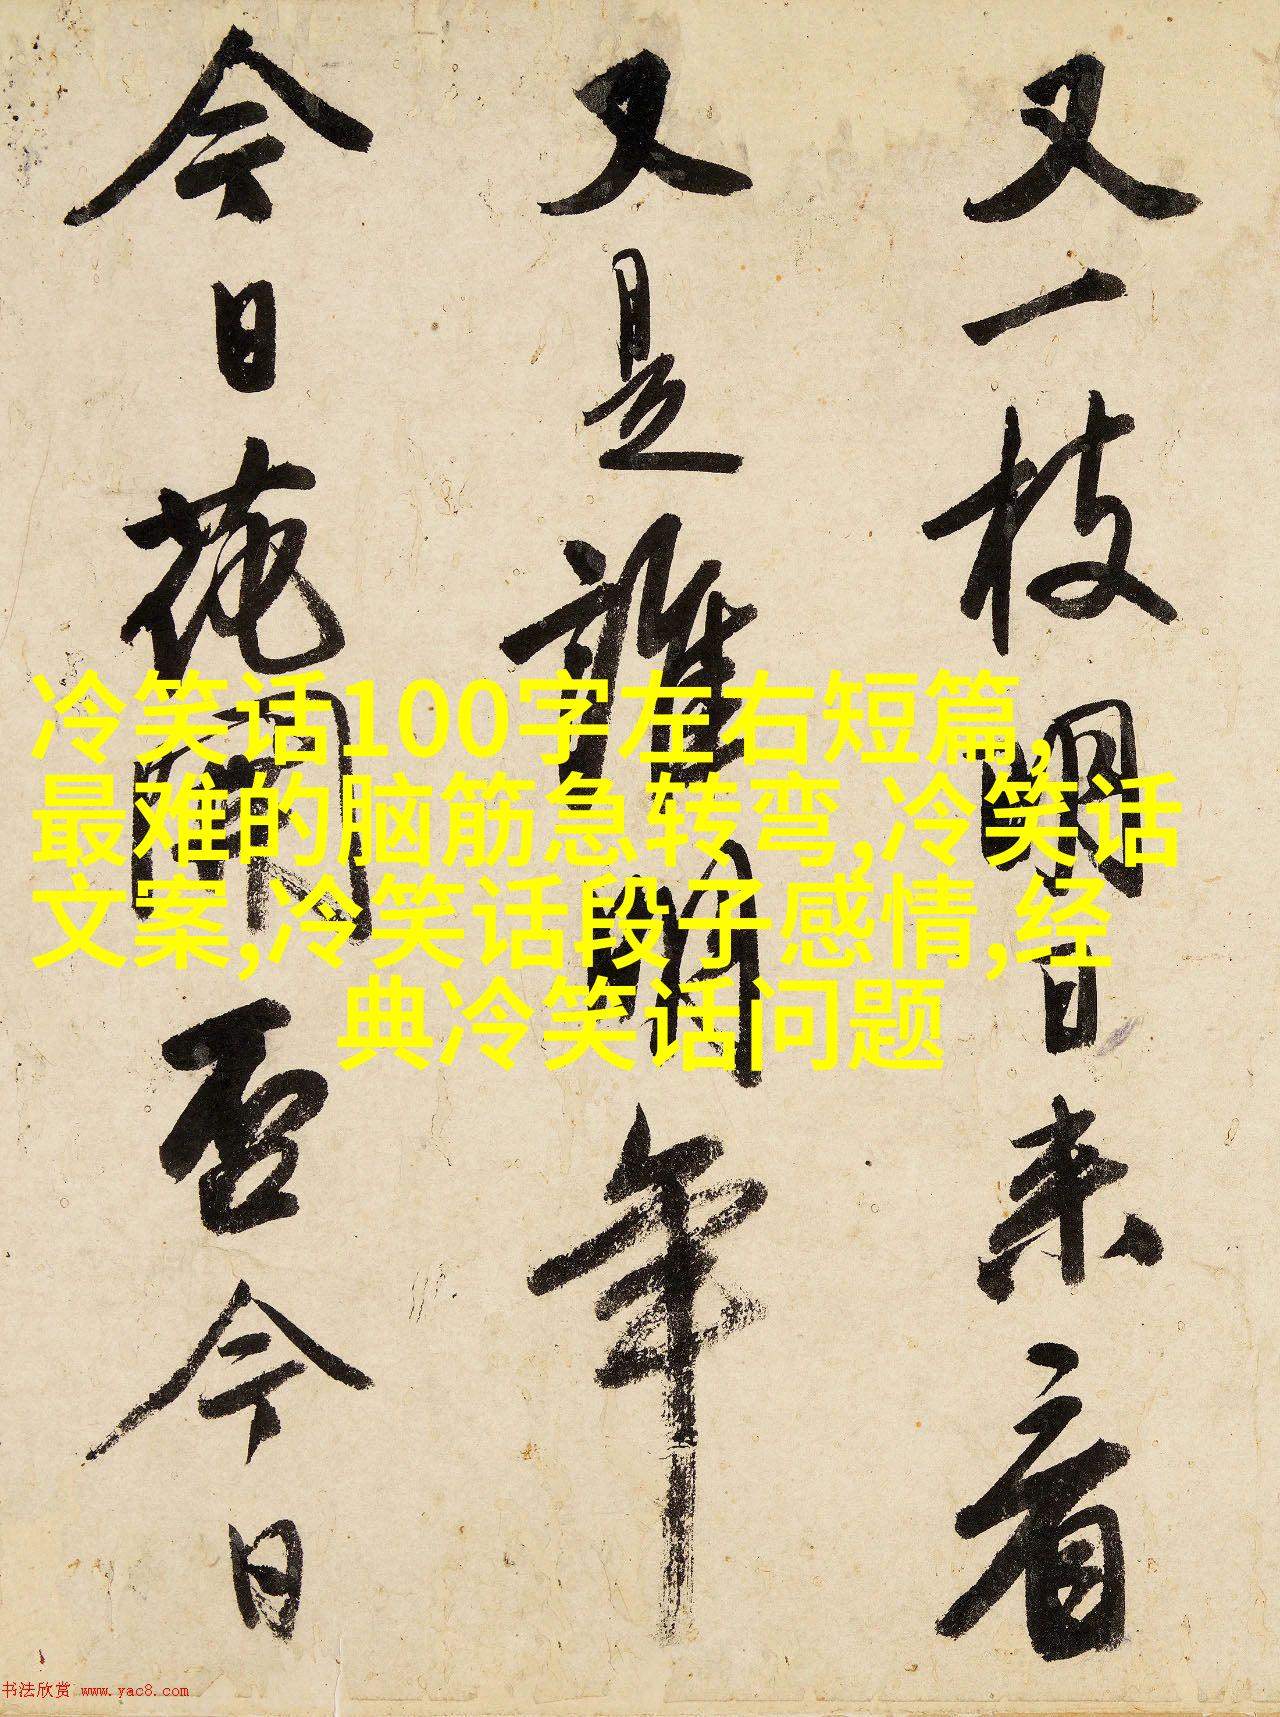 又一枝明日来看
又是誰明年
今日花開否今日
冷笑话100字左右短篇,
最难的脑筋急转弯,冷笑话
文案,冷笑话段子感情,经
典冷笑话问题
书法欣赏 www.yac8.com